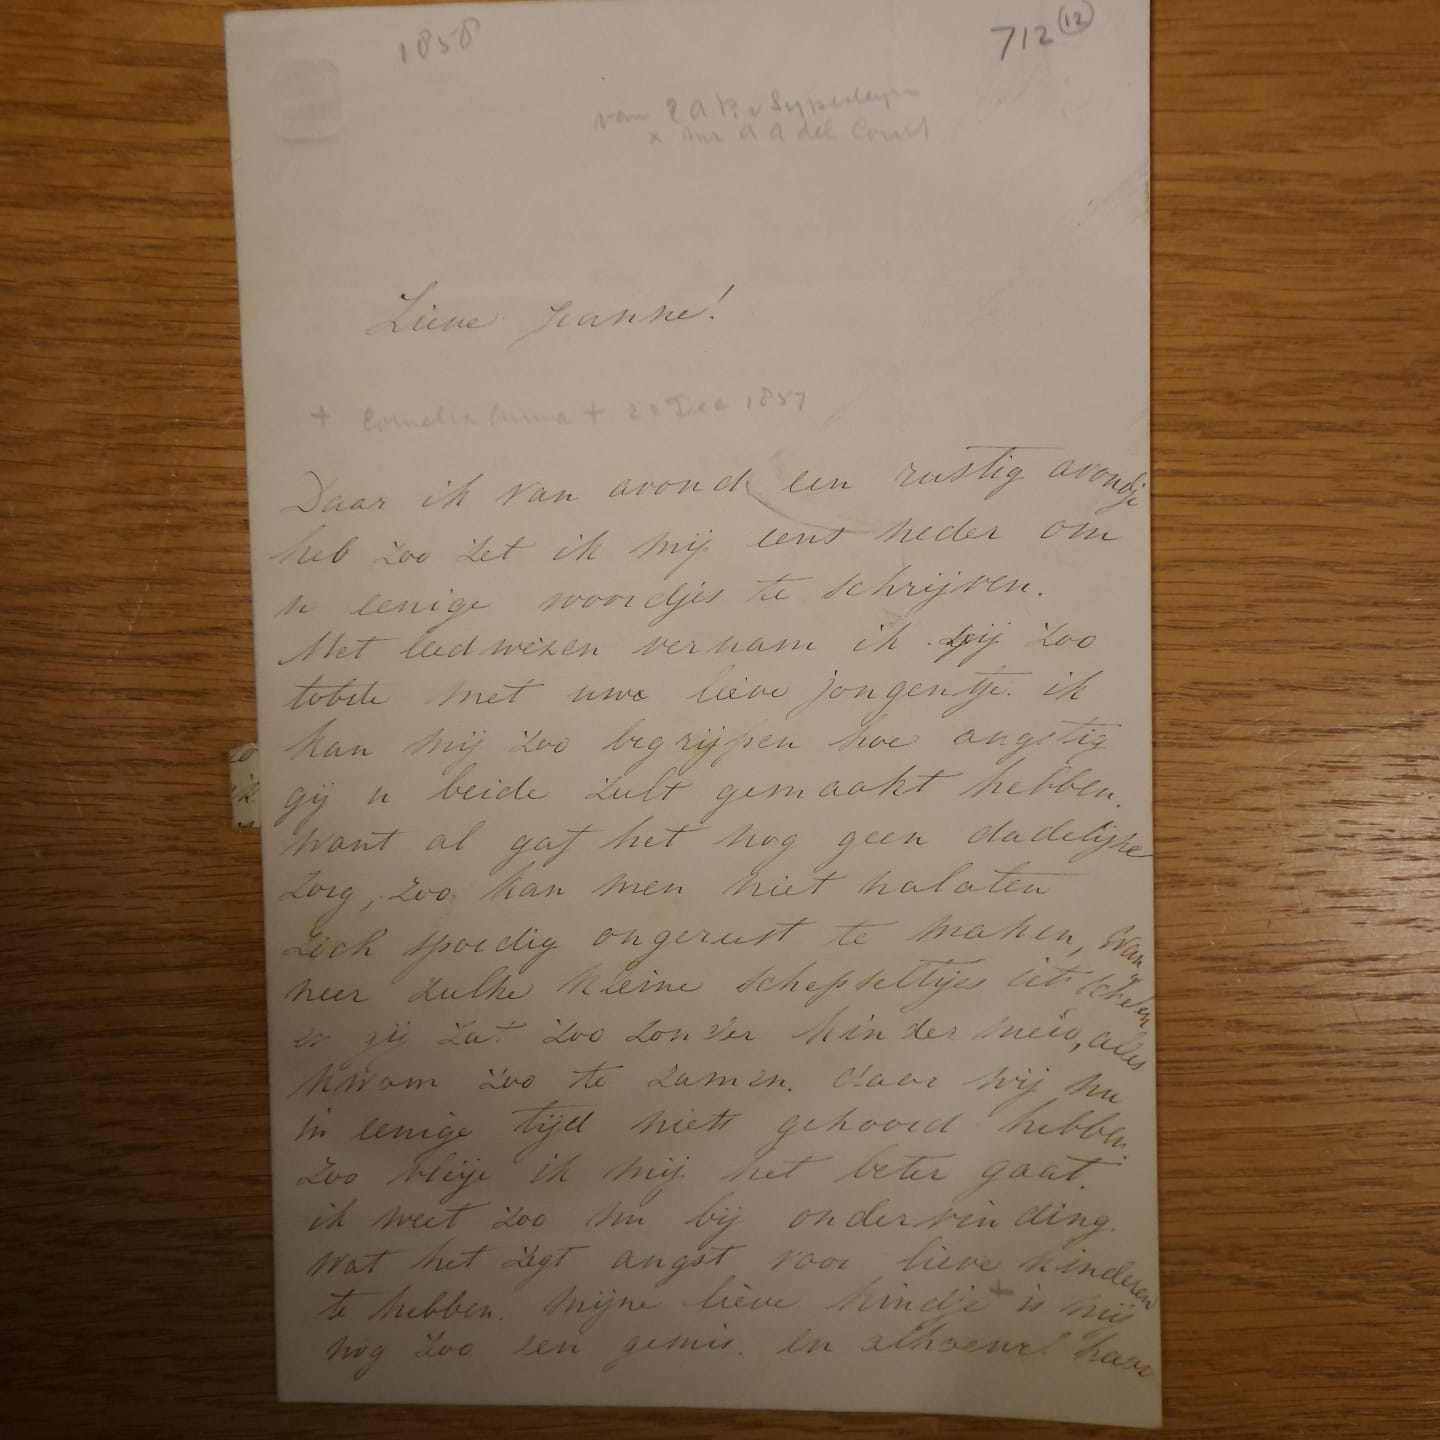 1858
712 (12)
van E A P. v Sypesteyn
x Mr A A del Court
Lieve Jeanne!
+ Cornelia Anna + 22 Dec 1857
Daar ik van avond een rustig avondje
heb zoo zet ik mij eens neder om
u eenige woordjes te schrijven.
Met leedwezen vernam ik gij zoo
tobde met uwe lieve jongentje. ik
kan mij zoo begrijpen hoe angstig
gij u beide zult gemaakt hebben.
want al gaf het nog geen dadelijke
zorg, zoo kan men niet nalaten
zich spoedig ongerust te maken, wan
neer zulke kleine schepseltjes iets schelen
en gij zat zoo zonder kindermeid, alles
kwam zoo te zamen. daar wij nu
in eenige tijd niets gehoord hebben.
zoo vleije ik mij het beter gaat.
ik weet zoo nu bij ondervinding.
wat het zegt angst voor lieve kinderen
te hebben. mijne lieve kindje + is mij
nog zoo een gemis. en alhoewel haar